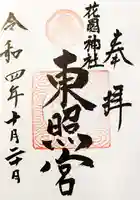 奉拝
花園神社
東照宮
令和四年十月二十日